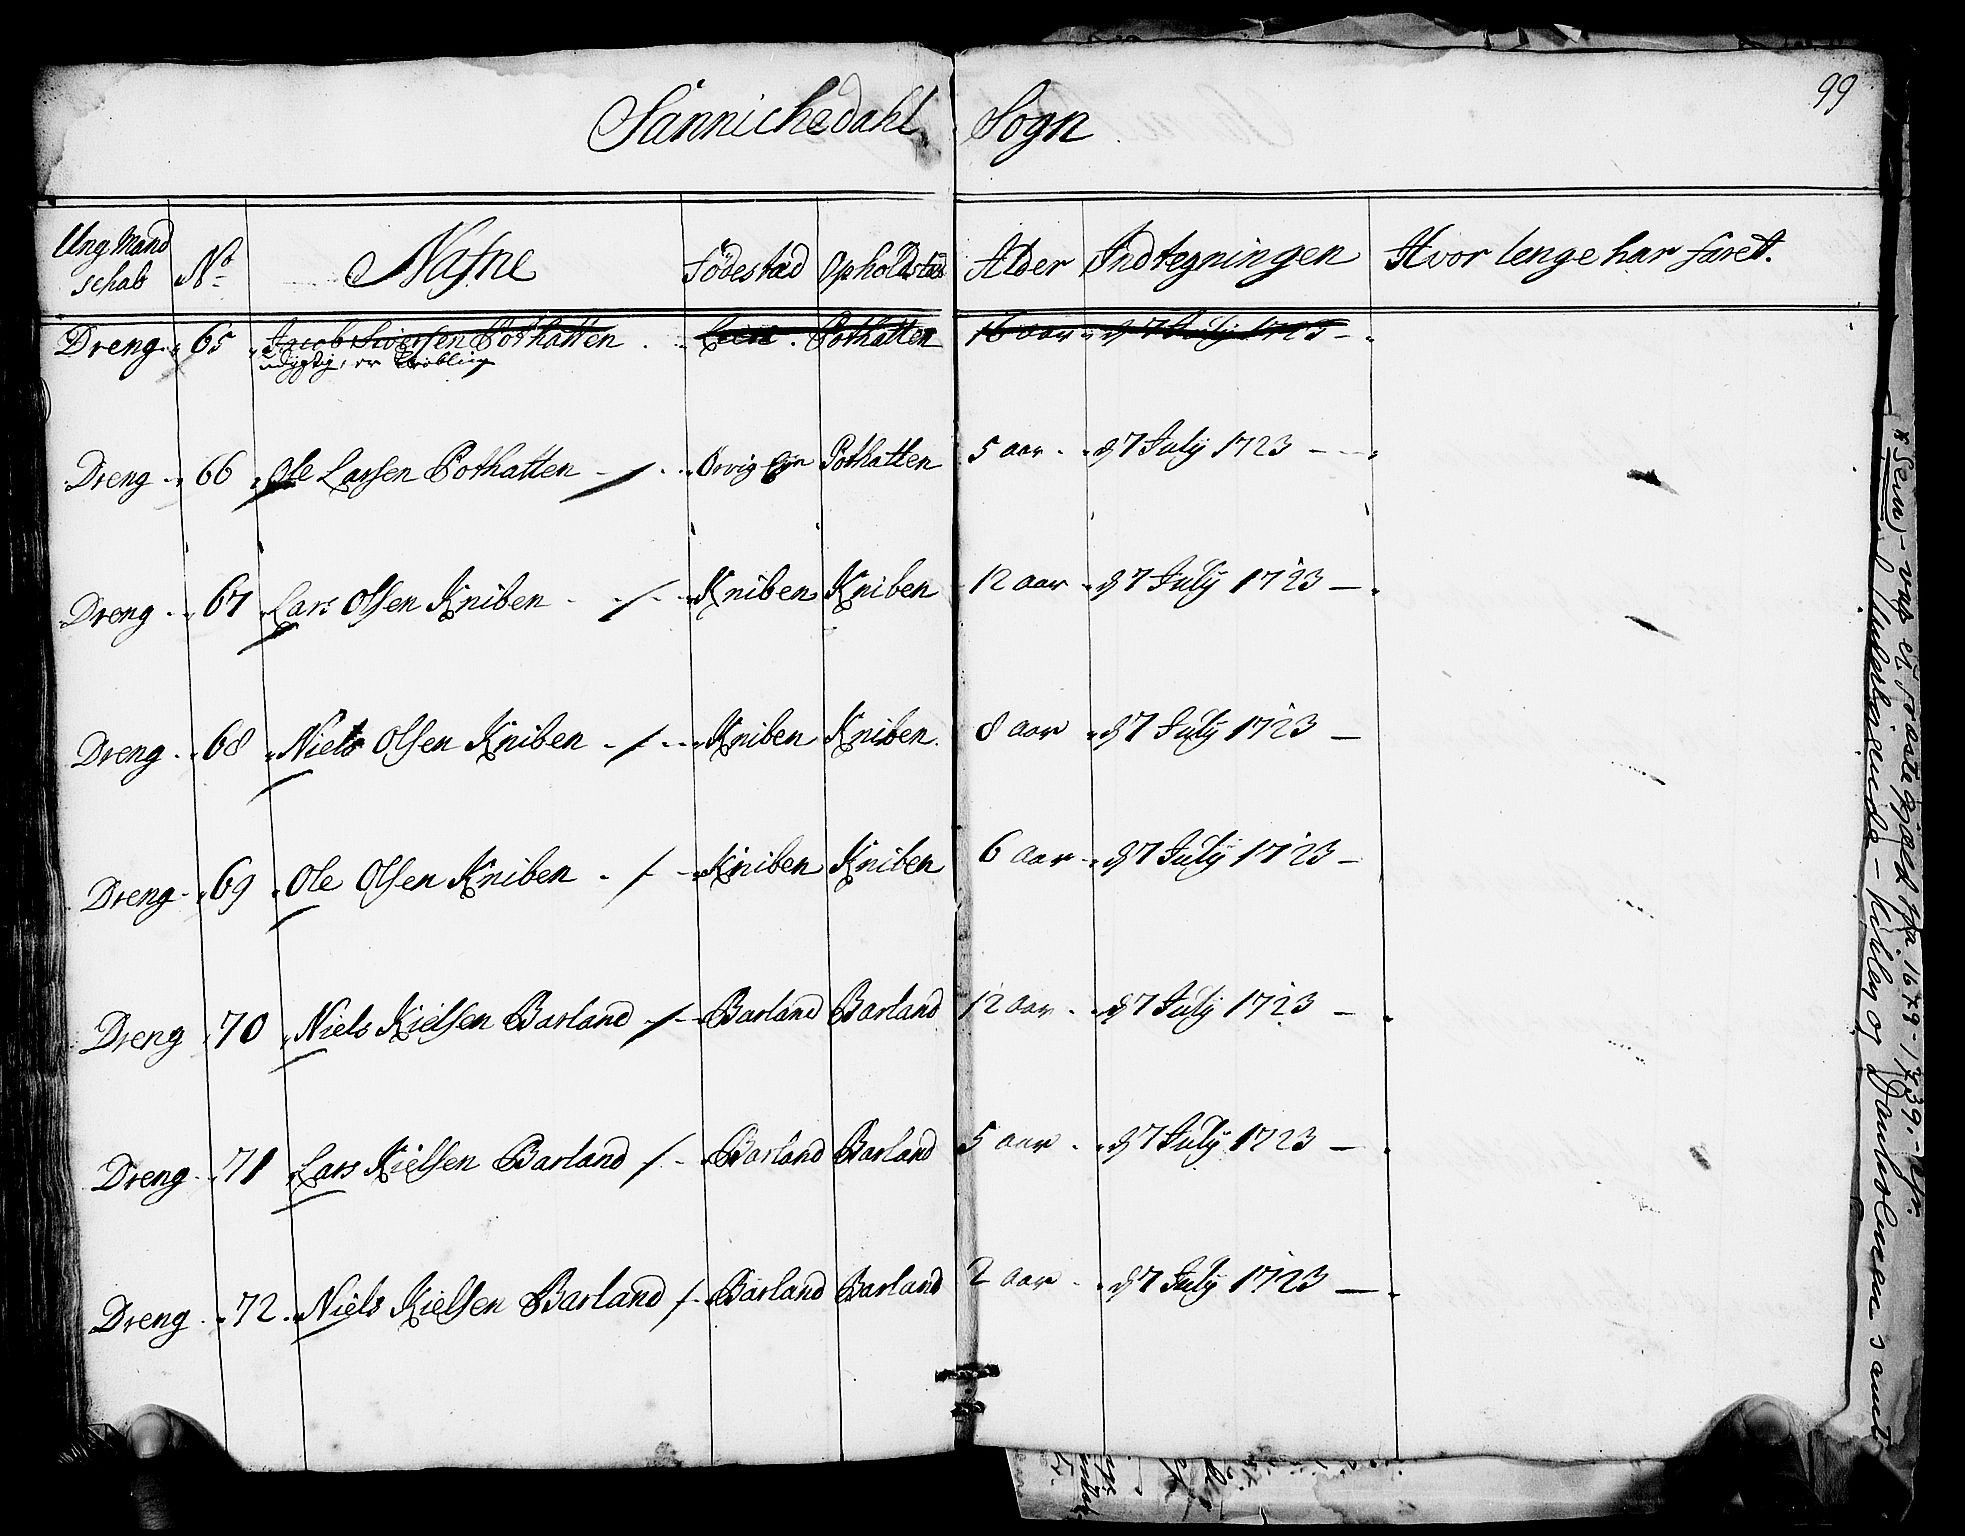 99
Sannichedahl Sogn
Ung Mand schab No Nafne Födestad Opholdstæd Alder Indtegningen Hvor lenge har faret.
Dreng 65 Jacob Siversen Pothatten Pothatten 16 aar d 7 July 1723
udygtig, er Krøbling
Dreng 66 Ole Larsen Pothatten Pothatten 5 aar d 7 July 1723
Dreng 67 Lars Olsen Kniben Kniben Kniben 12 aar d 7 July 1723
Dreng 68 Niels Olsen Kniben Kniben Kniben 8 aar d 7 July 1723
Dreng 69 Ole Olsen Kniben Kniben Kniben 6 aar d 7 July 1723
Dreng 70 Niels Kielsen Barland Barland Barland 12 aar d 7 July 1723
Dreng 71 Lars Kielsen Barland Barland Barland 5 aar d 7 July 1723
Dreng 72 Niels Kielsen Barland Barland Barland 2 aar d 7 July 1723